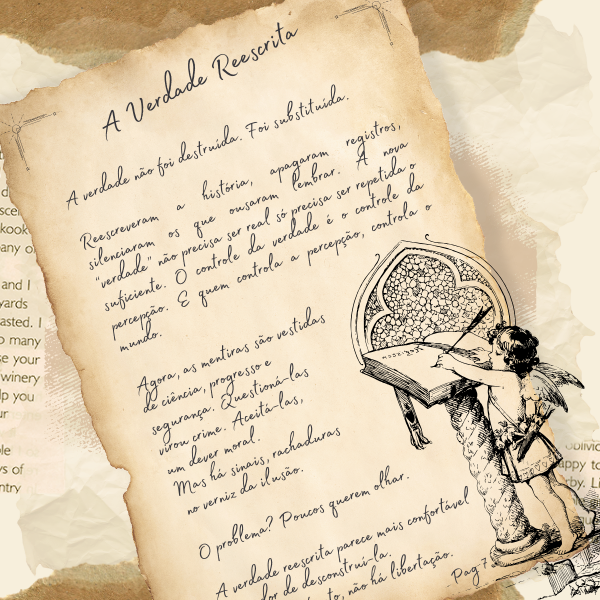 A Verdade Reescrita
A verdade não foi destruída. Foi substituída.
Reescreveram a história, apagaram registros,
silenciaram os que ousaram lembrar. A nova
"verdade" não precisa ser real só precisa ser repetida o
suficiente. O controle da verdade é o controle da
percepção. E quem controla a percepção, controla o
mundo.
Agora, as mentiras são vestidas
de ciência, progresso e
segurança. Questioná-las
virou crime. Aceitá-las,
um dever moral.
Mas há sinais, rachaduras
no verniz da ilusão.
O problema? Poucos querem olhar.
A verdade reescrita parece mais confortável
dor de desconstruí-la.
não há libertação.
Pag 7
and I
yards
asted. I
many
se your
winery
lp you
ur
ple
ys of
ntry